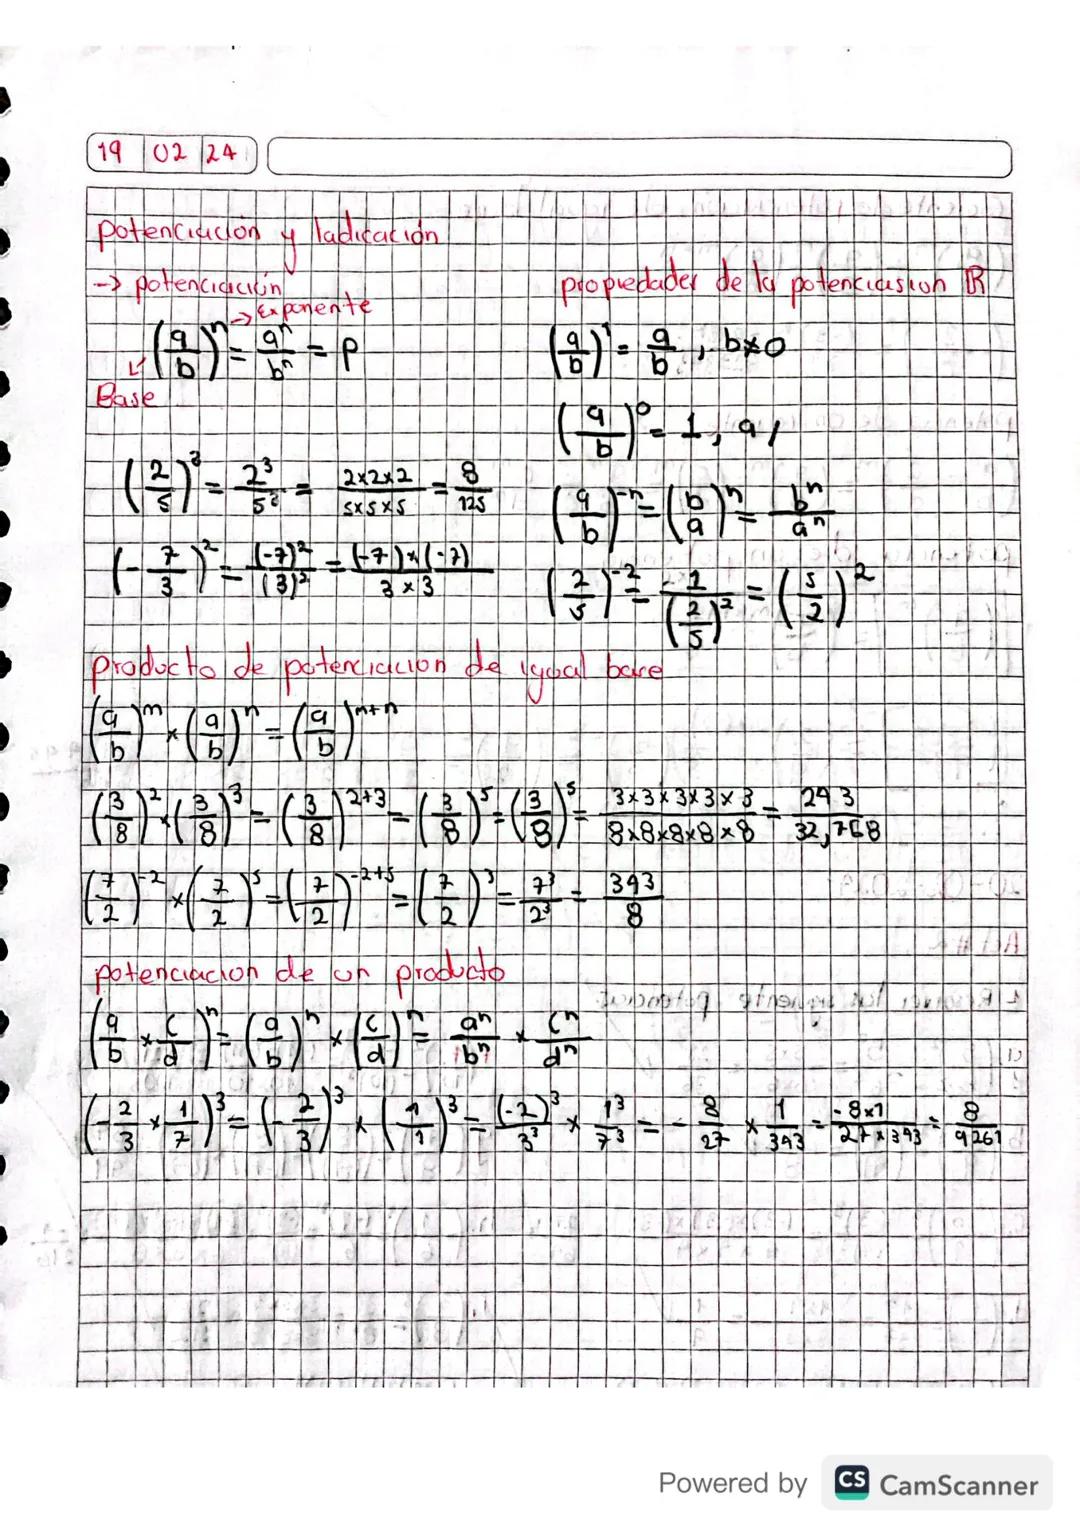 19 02 24
potenciación y ladicación
-> potenciación
-> Exponente
(a/b)^n = a^n/b^n = P
Base
(2/5)^3 = 2^3/5^3 = 2x2x2/5x5x5 = 8/125
(-7/3)^2 = (-7)^2/(3)^2 = (-7)x(-7)/3x3
propiedader de la potenciasion ℝ
(a/b)^1 = a/b, b≠0
(a/b)^0 = 1, a/
(a/b)^-n = (b/a)^n = b^n/a^n
(2/5)^-2 = -1/(2/5)^2 = (5/2)^2
producto de potenciacion de igual base
(a/b)^m x (a/b)^n = (a/b)^m+n
(3/8)^2 x (3/8)^3 = (3/8)^2+3 = (3/8)^5 = (3/8)^5 = 3x3x3x3x3/8x8x8x8x8 = 243/32,768
(7/2)^-2 x (7/2)^5 = (7/2)^-2+5 = (7/2)^3 = 7^3/2^3 = 343/8
potenciacion de un producto
(a/b x c/d)^n = (a/b)^n x (c/d)^n = a^n/b^n x c^n/d^n
(-2/3 x 1/7)^3 = (-2/3)^3 x (1/1)^3 = (-2)^3/3^3 x 1^3/7^3 = -8/27 x 1/343 = -8x1/27x343 = 8/9261
Powered by CS CamScanner